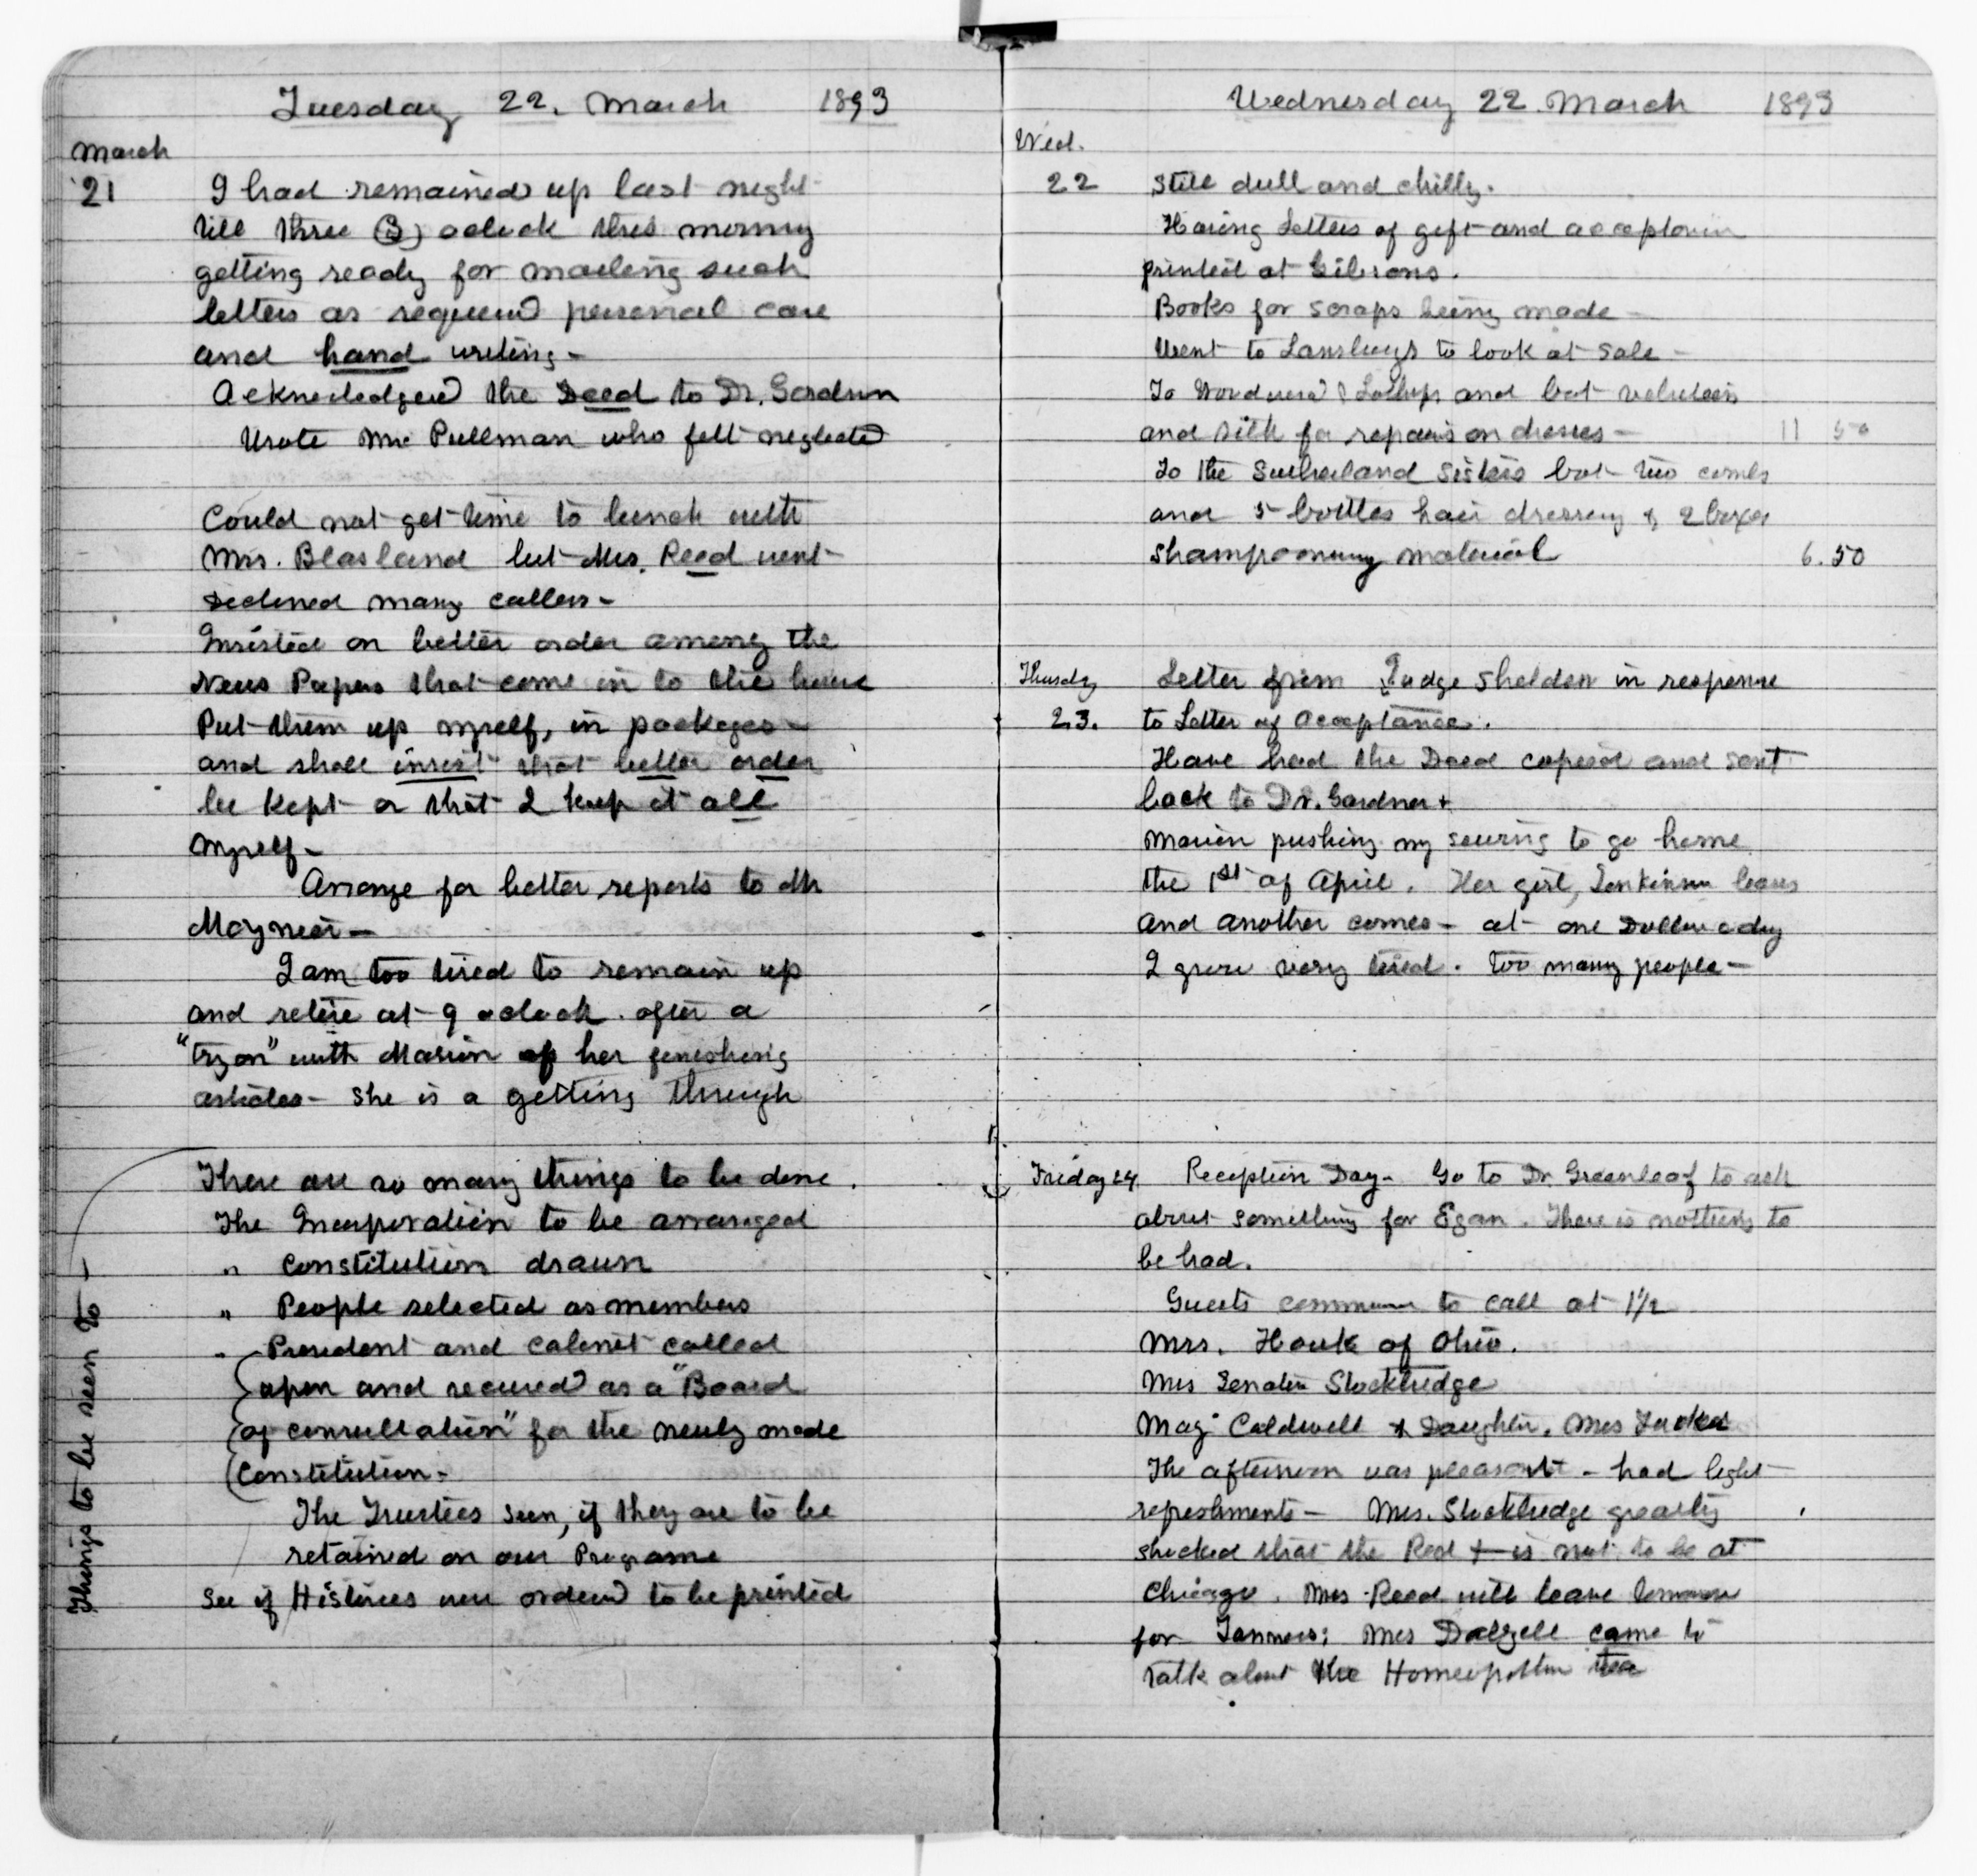 Tuesday 22. March 1893
March
21 I had remained up last night
till three (3) oclock this morning
getting ready for maileing such
letters as required personal care
and hand writing -
Acknowledged the Deed to Dr. Gardner
Wrote Mr Pullman who felt neglected
Could not get time to lunch with
Mrs. Blasland but Mrs. Reed went
Declined many callers -
Insisted on better order among the
News Papers that come in to the house
Put them up myself, in packages -
and shall insist that better order
be kept or that I keep it all
Myself -
Arrange for better reports to Mr
Moynier -
I am too tired to remain up
and retire at 9 oclock. after a
"try on" with Marion of her finishing
articles - She is a getting through
Things to be seen to -
There are so many things to be done.
The Incorporation to be arranged
" Constitution drawn
" People selected as members
" President and cabinet called
upon and secured as a "Board
of consultation" for the newly made
Constitution -
The Trustees seen, if they are to be
retained on our Programe
See if Histories were ordered to be printed
Wednesday 22. March 1893
Wed.
22 Still dull and chilly.
Having Letters of gift and acceptance
printed at Gibsons.
Books for scraps being made -
Went to Lansburgs to look at sale -
To Woodward & Lothrps and bot velveteen
and silk for repairs on dresses - 11 50
To the Sutherland Sisters bot two combs
and 5 bottles hair dressing & 2 boxes
Shampooning material 6.50
Thursdy Letter from Judge Sheldon in response
23. to Letter of acceptance.
Have had the Deed copied and sent
back to Dr. Gardner +
Marion pushing my sewing to go home
the 1st of April. Her girl, Jenkinson leaves
and another comes - at one Dollar a day
I grow very tired. too many people -
Friday 24 Reception Day - Go to Dr. Greenleaf to ask
about something for Egan. There is nothing to
be had.
Guests commence to call at 1½
Mrs. Houk of Ohio.
Mrs Senator Stockbridge
Maj Caldwell & Daughter. Mrs Tucker
The afternoon was pleasant - had light
refreshments - Mrs. Stockbridge greatly
shocked that the Red + is not to be at
Chicago. Mrs Reed will leave tomorrow
for Tanners; Mrs Dalzell came to
talk about the Homeopathic tea